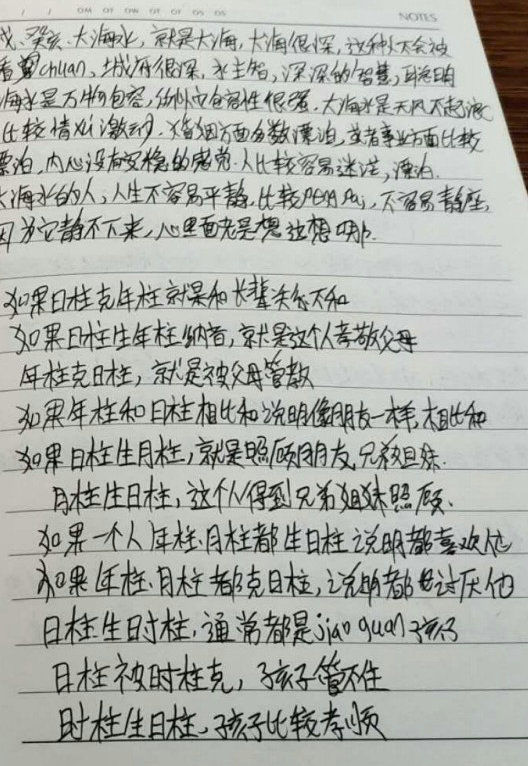 NOTES
戌、癸亥、大海水,就是大海,大海很深,这种人会被
看chuan,城府很深,水主智,深深的智慧,聪明
海水是万物包容,包容性很强.大海水是无风不起浪
比较情绪激动.婚姻方面多数漂泊,或者事业方面比较
漂泊,内心没有安稳的感觉.人比较容易迷茫,漂泊.
大海水的人,人生不容易平静.比较,不容易静座,
因为它静不下来,心里面老是想这想哪.
如果日柱克年柱就是和长辈关系不和
如果日柱生年柱纳音,就是这个人孝敬父母
年柱克日柱,就是被父母管教
如果年柱和日柱相比和说明像朋友一样,相比和
如果日柱生月柱,就是照顾朋友,兄弟姐妹.
月柱生日柱,这个人得到兄弟姐妹照顾.
如果一个人年柱.月柱都生日柱说明都喜欢他
如果年柱.月柱都克日柱,说明都讨厌他
日柱生时柱,通常都是jiao guan孩子
日柱被时柱克,孩子管不住
时柱生日柱,孩子比较孝顺